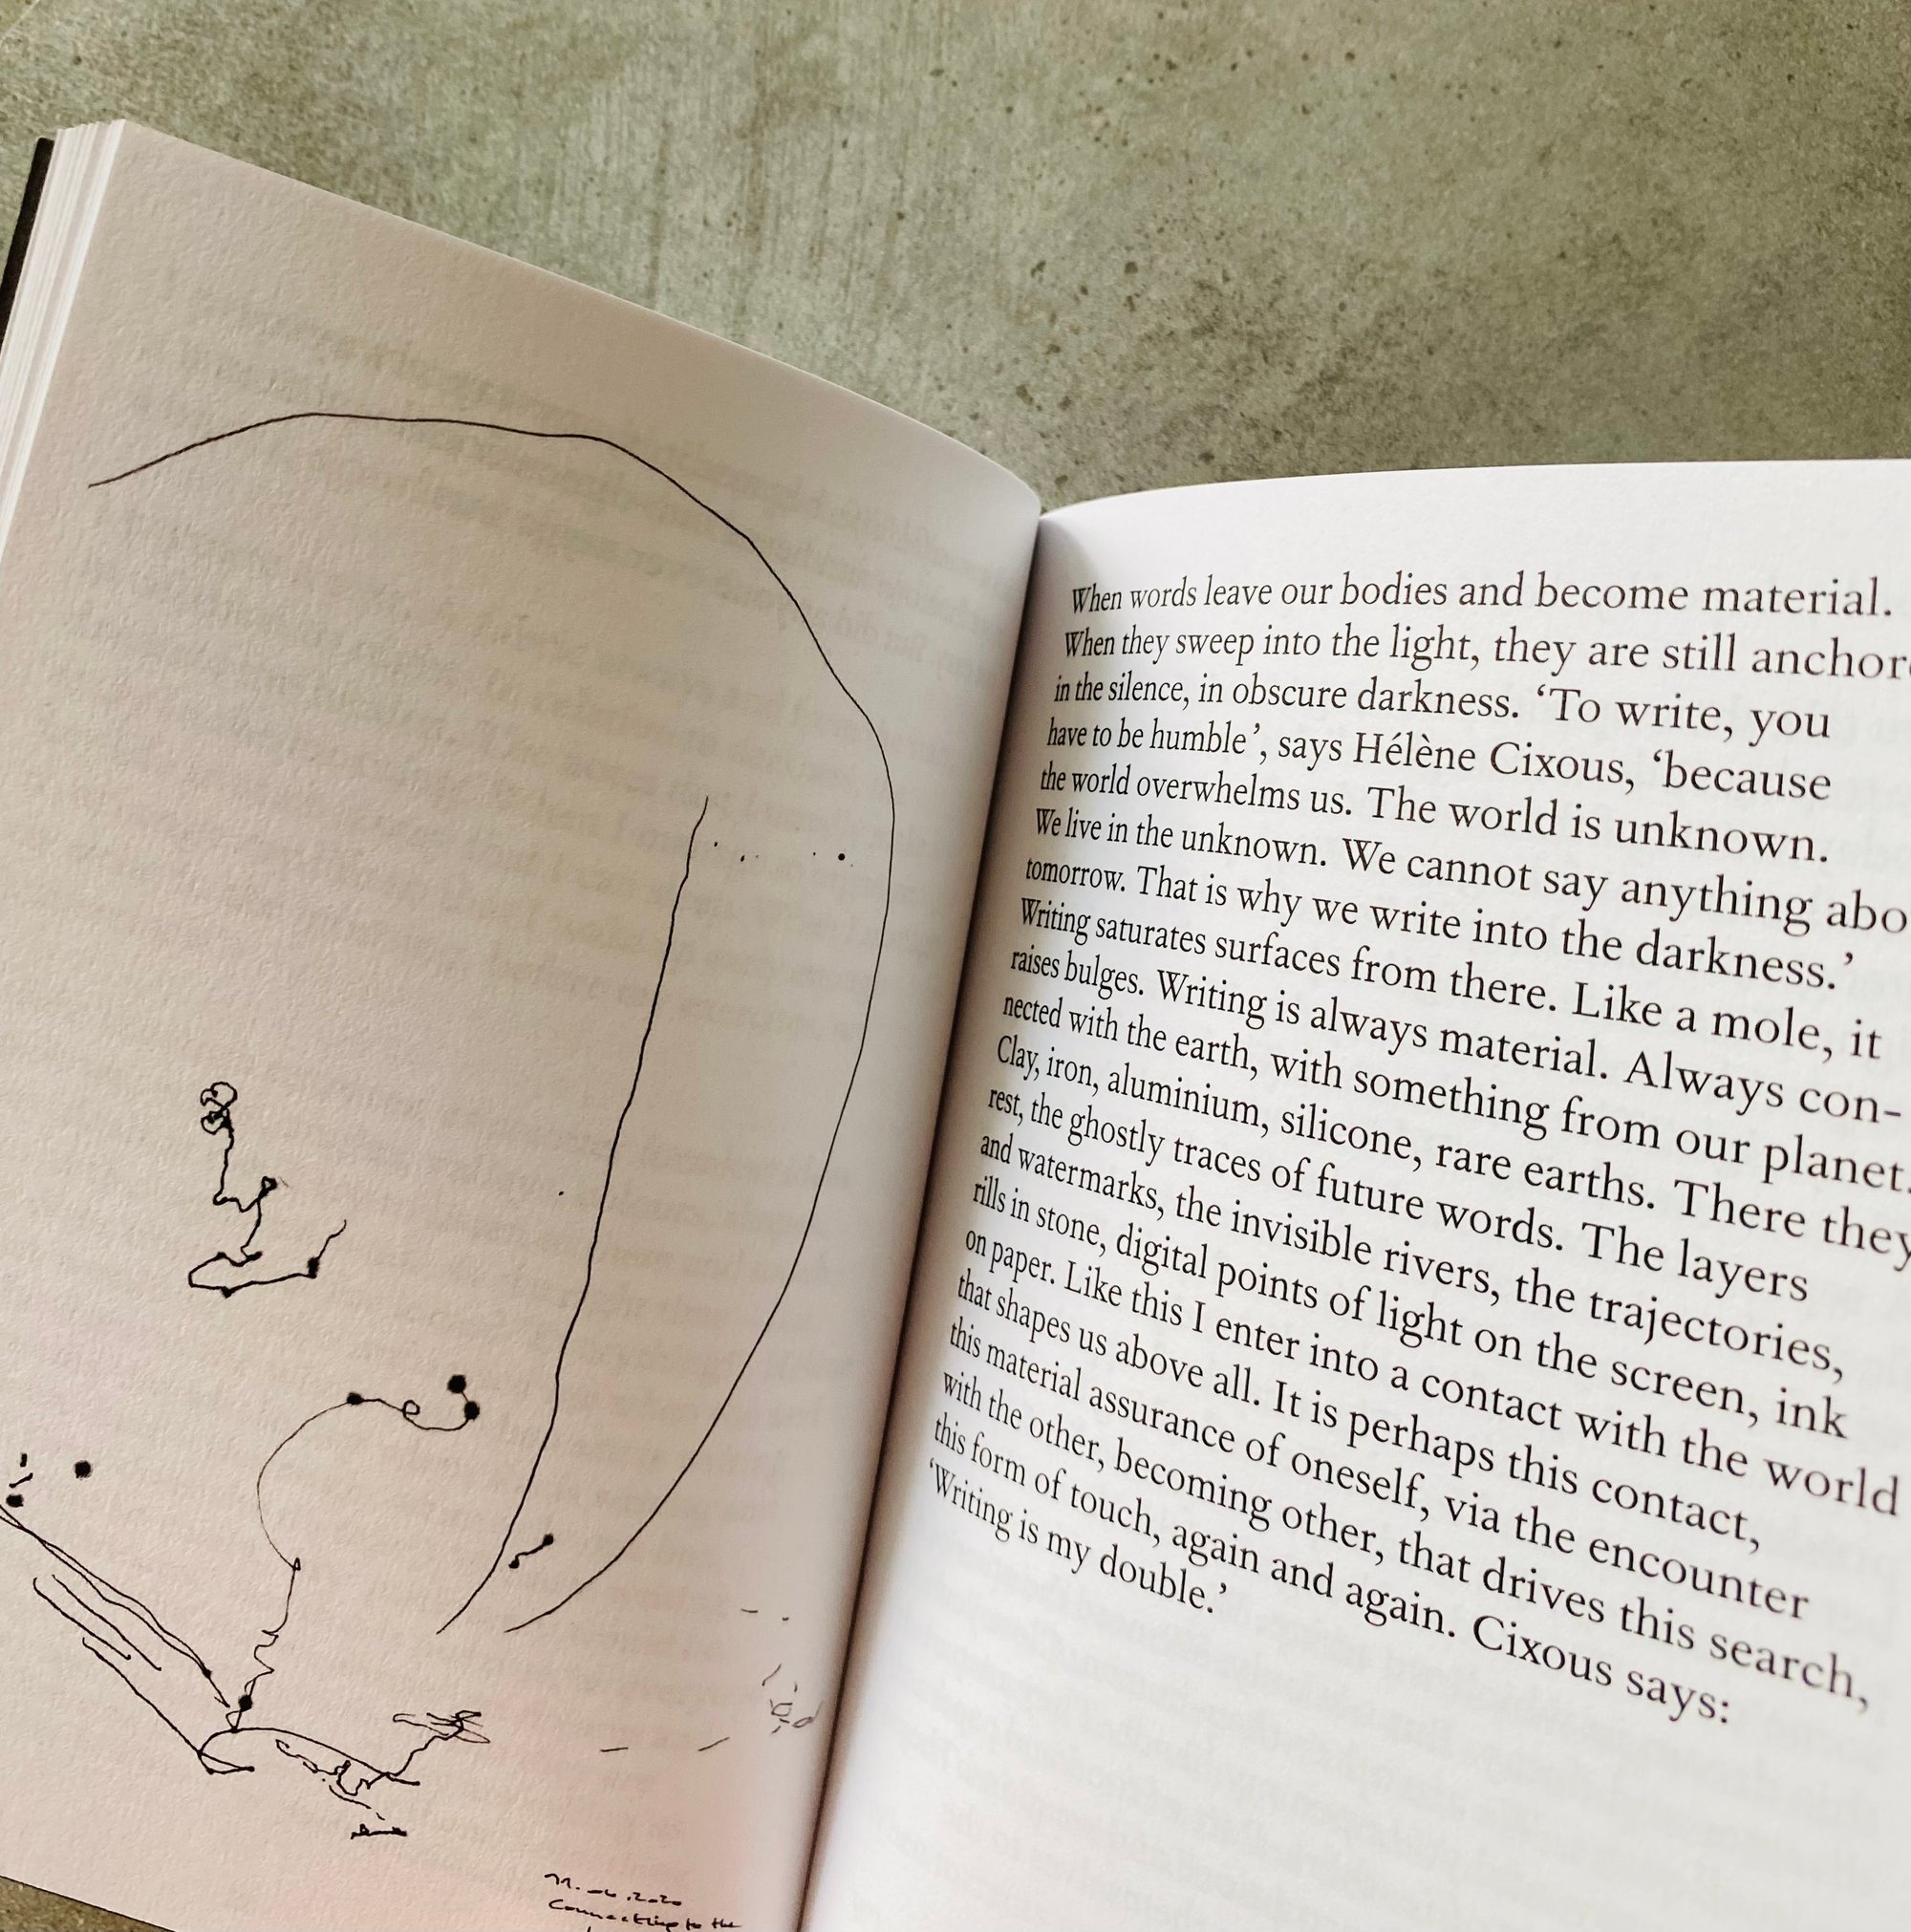 When words leave our bodies and become material.
When they sweep into the light, they are still anchor
in the silence, in obscure darkness. ‘To write, you
have to be humble’, says Hélène Cixous, ‘because
the world overwhelms us. The world is unknown.
We live in the unknown. We cannot say anything abo
tomorrow. That is why we write into the darkness.’
Writing saturates surfaces from there. Like a mole, it
raises bulges. Writing is always material. Always con-
nected with the earth, with something from our planet.
Clay, iron, aluminium, silicone, rare earths. There they
rest, the ghostly traces of future words. The layers
and watermarks, the invisible rivers, the trajectories,
rills in stone, digital points of light on the screen, ink
on paper. Like this I enter into a contact with the world
that shapes us above all. It is perhaps this contact,
this material assurance of oneself, via the encounter
with the other, becoming other, that drives this search,
this form of touch, again and again. Cixous says:
‘Writing is my double.’
2020
Connecting to the